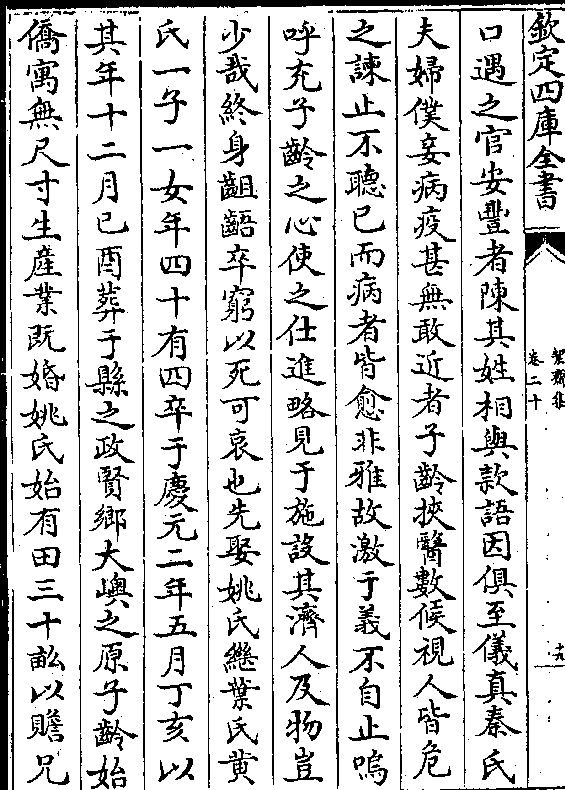 欽定四庫全書
絜齋集
卷二十
十九
口遇之官安豐者陳其姓相與款語因俱至儀真秦氏
夫婦僕妾病疫甚無敢近者子齡挾醫數候視人皆危
之諫止不聽已而病者皆愈非雅故激于義不自止嗚
呼充子齡之心使之仕進略見于施設其濟人及物豈
少哉終身齟齬卒窮以死可哀也先娶姚氏繼葉氏黄
氏一子一女年四十有四卒于慶元二年五月丁亥以
其年十二月己酉葬于縣之政賢鄉大嶼之原子齡始
僑寓無尺寸生産業既婚姚氏始有田三十畝以贍兄